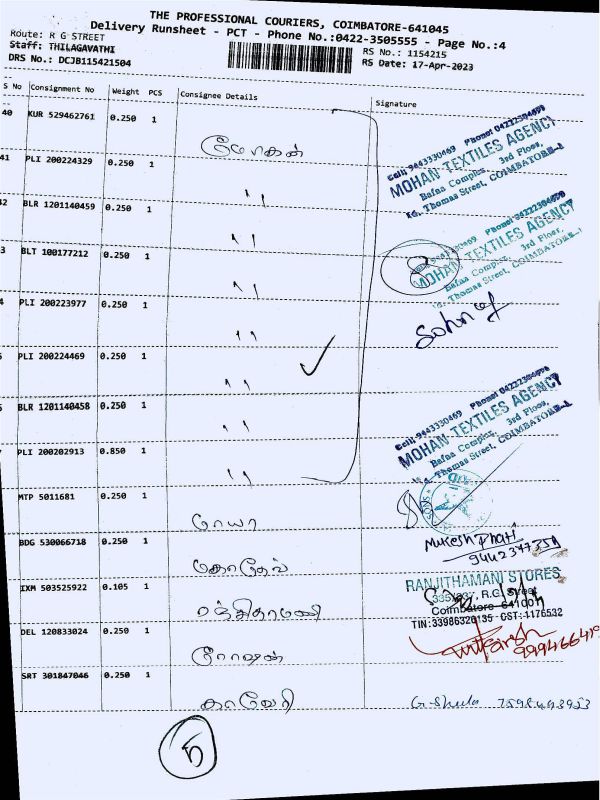 THE PROFESSIONAL COURIERS, COIMBATORE-641045
Delivery Runsheet - PCT - Phone No.:0422-3505555 - Page No.:4
Route: R G STREET
Staff: THILAGAVATHI
RS No.: 1154215
DRS No.: DCJB115421504
RS Date: 17-Apr-2023
S No Consignment No Weight PCS Consignee Details Signature
40 KUR 529462761 0.250 1
41 PLI 200224329 0.250 1 ''
42 BLR 1201140459 0.250 1 ''
3 BLT 100177212 0.250 1 ''
4 PLI 200223977 0.250 1 ''
5 PLI 200224469 0.250 1 ''
6 BLR 1201140458 0.250 1 ''
7 PLI 200202913 0.850 1 ''
MTP 5011681 0.250 1
BDG 530066718 0.250 1 மகாதேவ்
IXM 503525922 0.105 1 ரஞ்சிதாமணி
DEL 120833024 0.250 1 ரோஷன்
SRT 301847046 0.250 1 காவேரி
Cell: 9443330469 Phone: 04222304690
MOHAN TEXTILES AGENCY
Bafna Complex, 3rd Floor,
Thomas Street, COIMBATORE-1
8
Cell: 9443330469 Phone: 04222304690
MOHAN TEXTILES AGENCY
Bafna Complex, 3rd Floor,
Thomas Street, COIMBATORE-1
Cell: 9443330469 Phone: 04222304690
MOHAN TEXTILES AGENCY
Bafna Complex, 3rd Floor,
Thomas Street, COIMBATORE-1
Mukesh Bhati
RANJITHAMANI STORES
R.G. Street
Coimbatore - 641001
TIN:33986320135 - CST:1176532
5